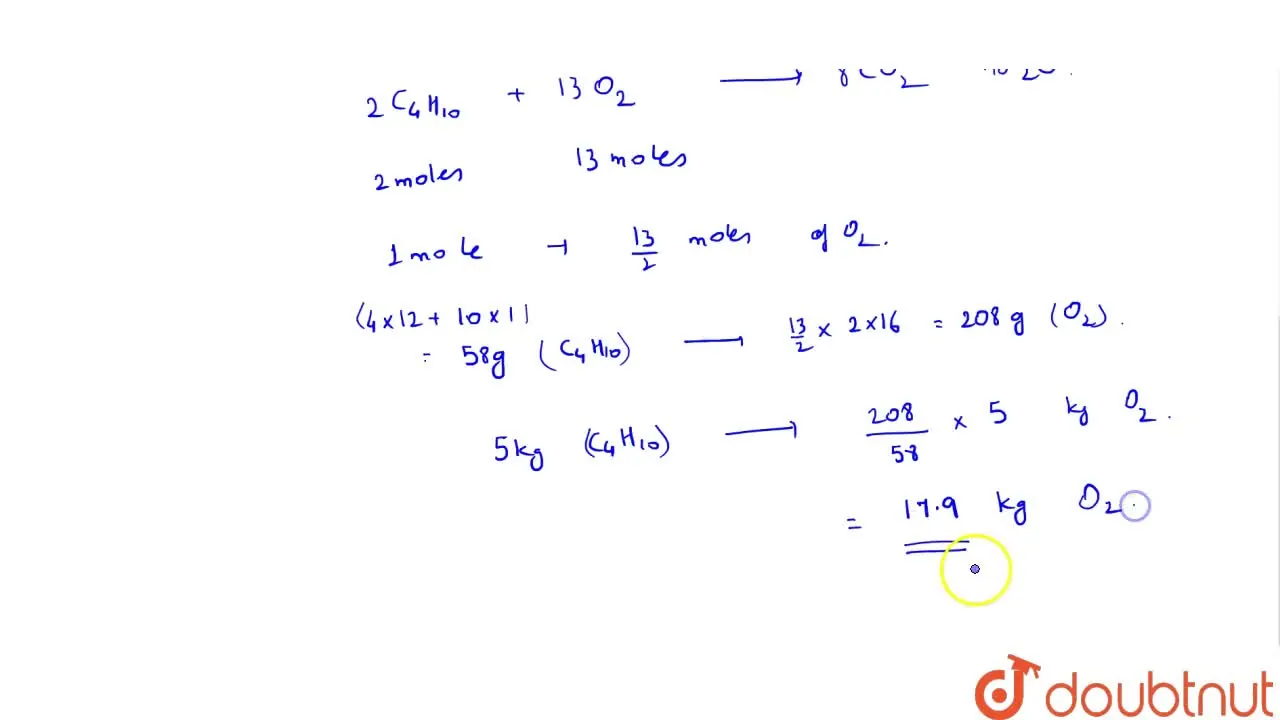 2 C₄H₁₀ + 13 O₂ ⟶ 8CO₂
2 moles 13 moles
1 mole → 13/2 moles of O₂.
(4×12 + 10×1)
= 58g (C₄H₁₀) ⟶ 13/2 × 2×16 = 208 g (O₂).
5kg (C₄H₁₀) ⟶ 208/58 × 5 kg O₂.
= 17.9 kg O₂.
doubtnut